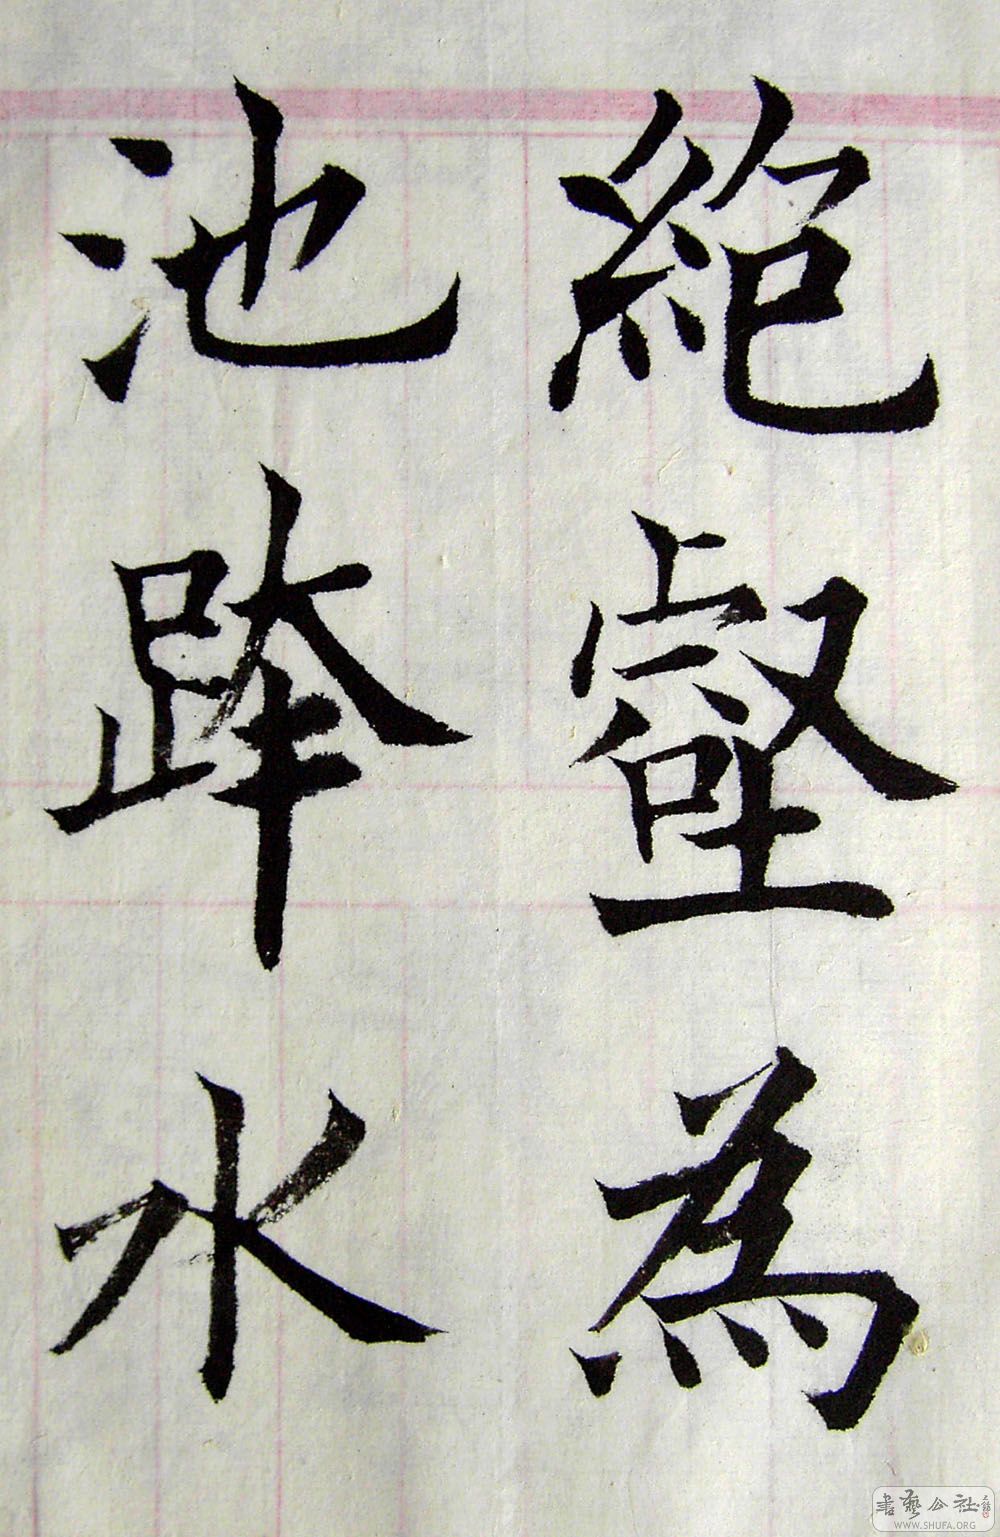 絶壑為
池跨水
書藝公社
WWW.SHUFA.ORG